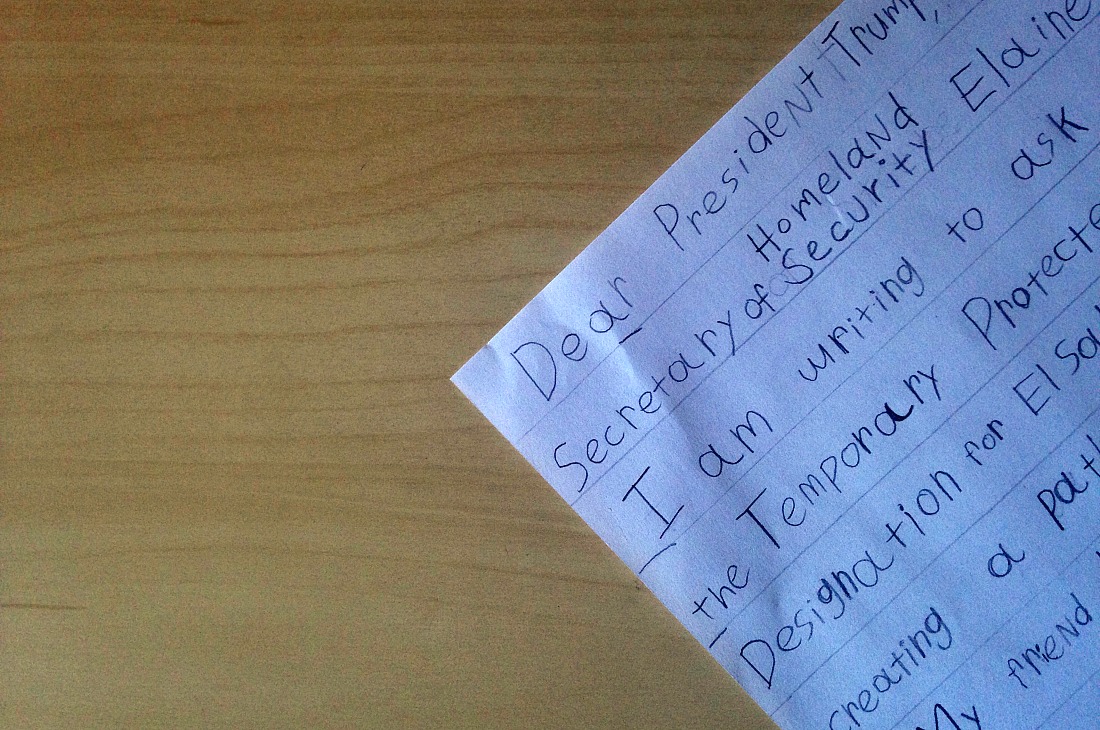 Dear President Trump,
Homeland
Secretary of Security Elaine
I am writing to ask
the Temporary Protecte
Designation for El Sal
creating a path
My friend